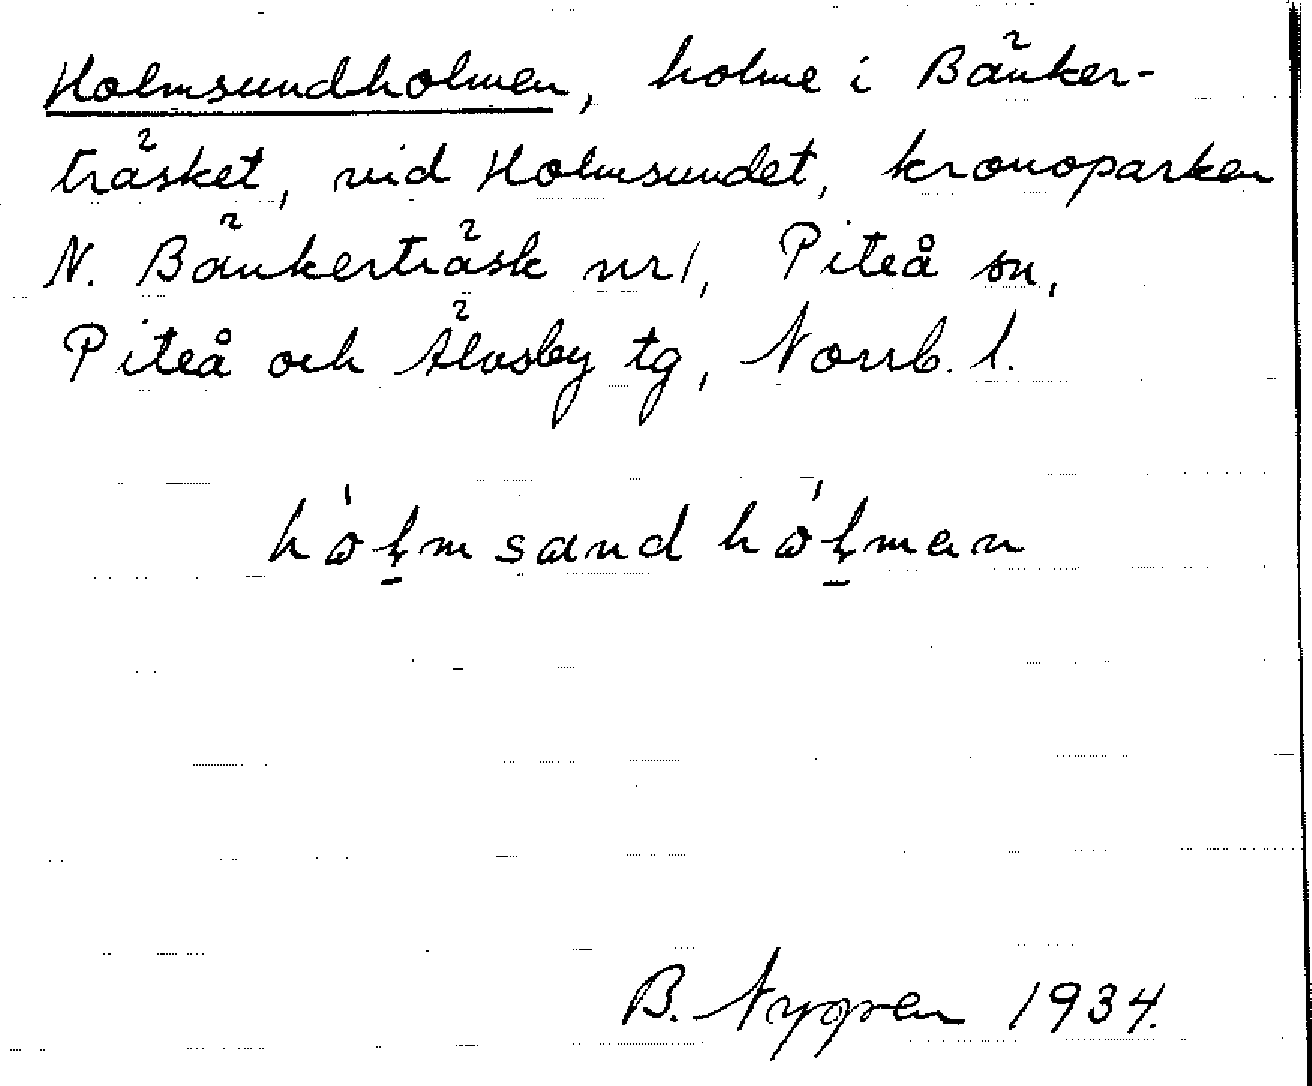 Holmsundholmen, holme i Bänker-
träsket, vid Holmsundet, kronoparken
N. Bänkerträsk nr 1, Piteå sn,
Piteå och Älvsby tg, Norrb. l.
B. Nygren 1934.